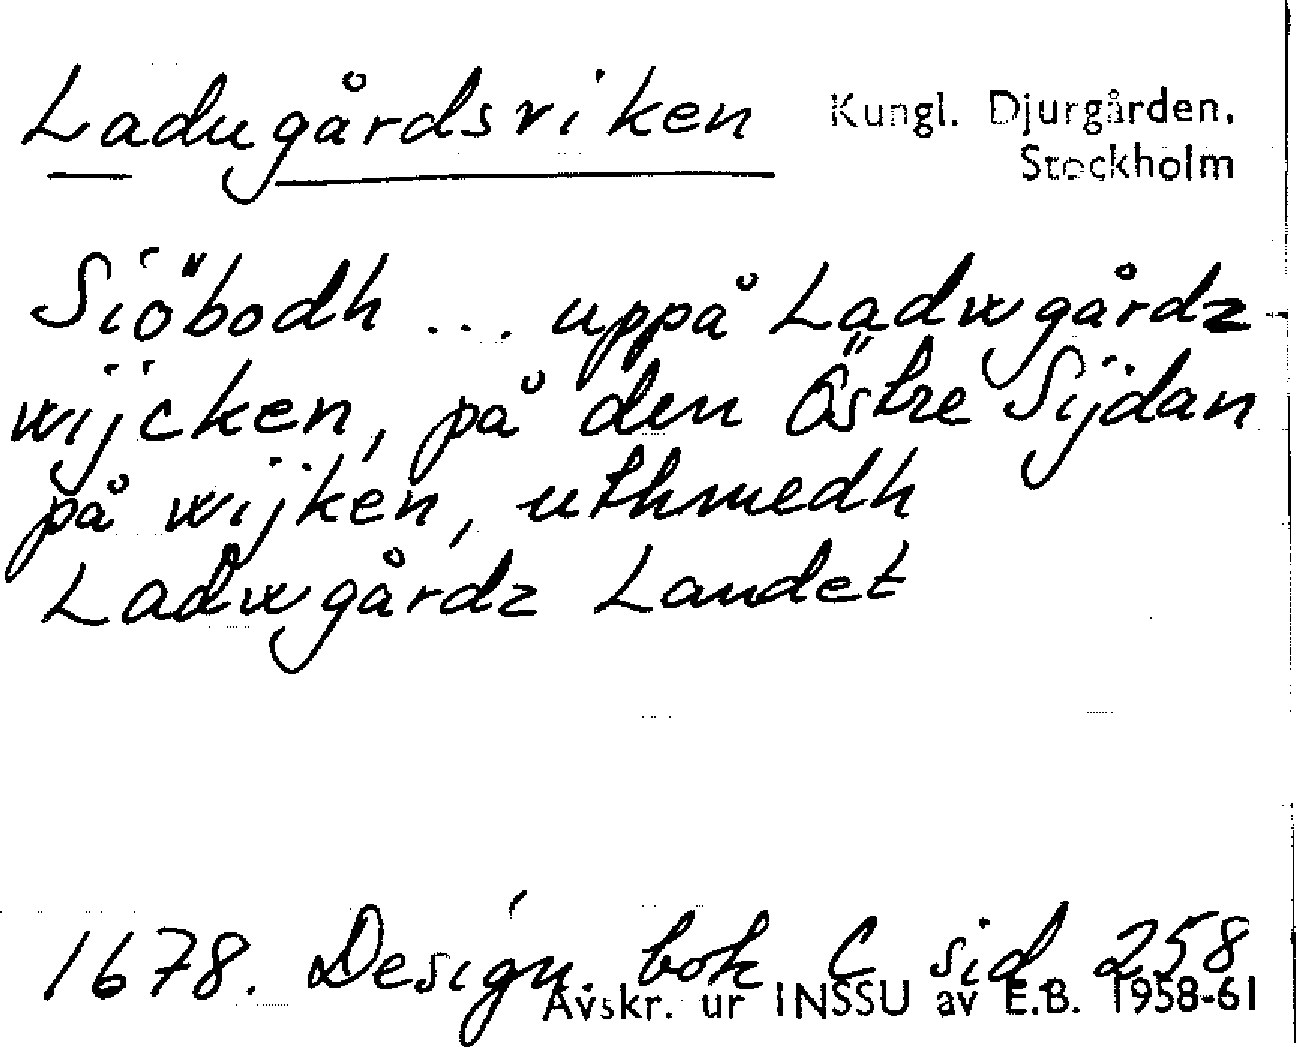 Ladugårdsviken Kungl. Djurgården.
Stockholm
Siöbodh ... uppå Ladwgårdz
wijcken, på den Östre Sijdan
på wijken, uthmedh
Ladwgårdz Landet
1678. Design. bok C sid 258
Avskr. ur INSSU av E.B. 1958-61